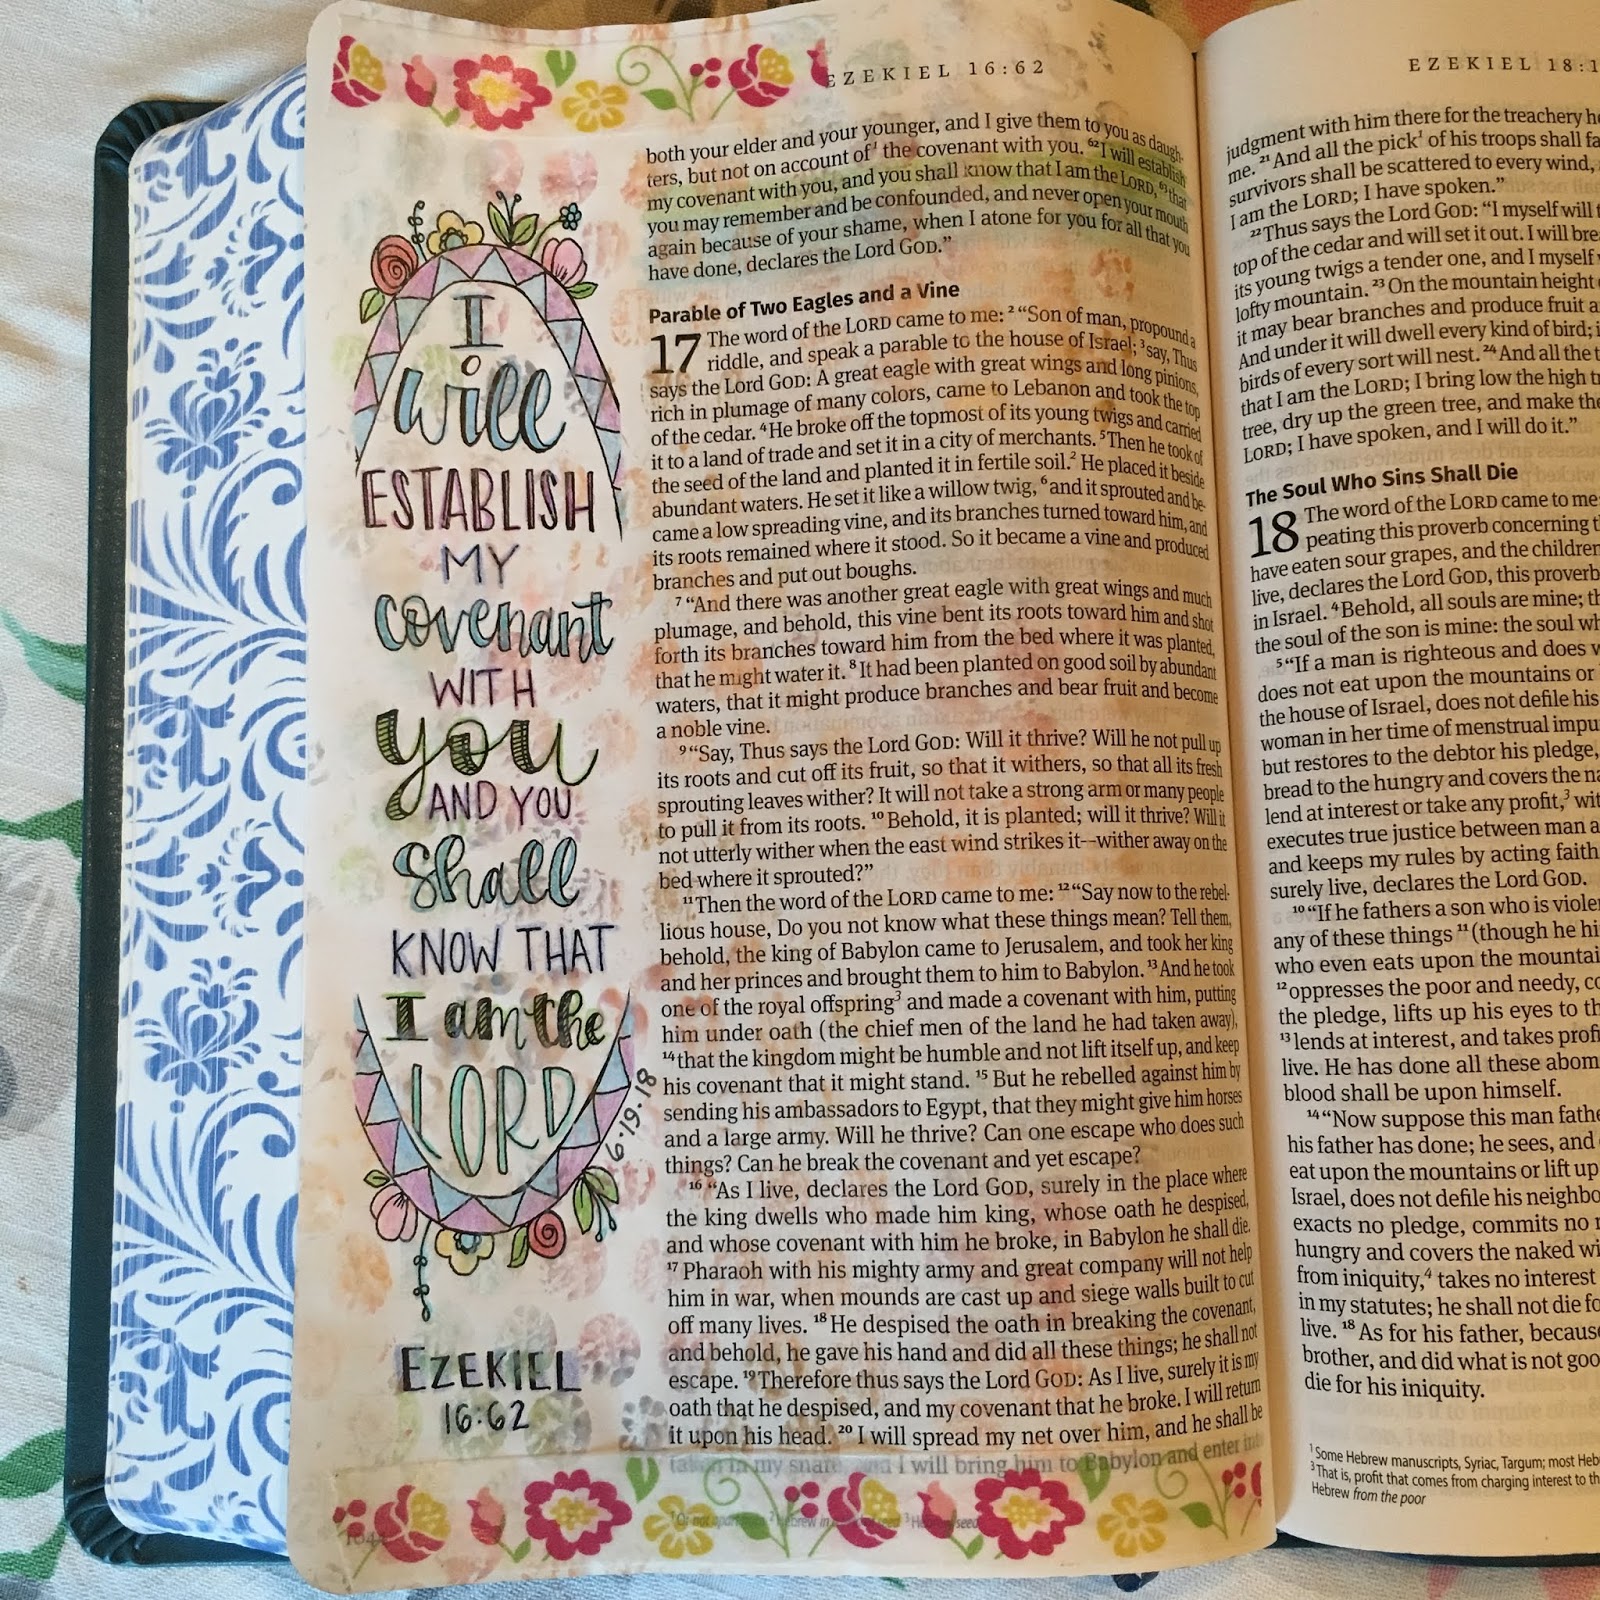 EZEKIEL 16:62
I
will
ESTABLISH
MY
covenant
WITH
you
AND YOU
shall
KNOW THAT
I am the
LORD
6·19·18
EZEKIEL
16:62
both your elder and your younger, and I give them to you as daugh-
ters, but not on account of¹ the covenant with you. ⁶²I will establish
my covenant with you, and you shall know that I am the LORD, ⁶³that
you may remember and be confounded, and never open your mouth
again because of your shame, when I atone for you for all that you
have done, declares the Lord GOD.”
Parable of Two Eagles and a Vine
17 The word of the LORD came to me: ²“Son of man, propound a
riddle, and speak a parable to the house of Israel; ³say, Thus
says the Lord GOD: A great eagle with great wings and long pinions,
rich in plumage of many colors, came to Lebanon and took the top
of the cedar. ⁴He broke off the topmost of its young twigs and carried
it to a land of trade and set it in a city of merchants. ⁵Then he took of
the seed of the land and planted it in fertile soil.² He placed it beside
abundant waters. He set it like a willow twig, ⁶and it sprouted and be-
came a low spreading vine, and its branches turned toward him, and
its roots remained where it stood. So it became a vine and produced
branches and put out boughs.
⁷“And there was another great eagle with great wings and much
plumage, and behold, this vine bent its roots toward him and shot
forth its branches toward him from the bed where it was planted,
that he might water it. ⁸It had been planted on good soil by abundant
waters, that it might produce branches and bear fruit and become
a noble vine.
⁹“Say, Thus says the Lord GOD: Will it thrive? Will he not pull up
its roots and cut off its fruit, so that it withers, so that all its fresh
sprouting leaves wither? It will not take a strong arm or many people
to pull it from its roots. ¹⁰Behold, it is planted; will it thrive? Will it
not utterly wither when the east wind strikes it--wither away on the
bed where it sprouted?”
¹¹Then the word of the LORD came to me: ¹²“Say now to the rebel-
lious house, Do you not know what these things mean? Tell them,
behold, the king of Babylon came to Jerusalem, and took her king
and her princes and brought them to him to Babylon. ¹³And he took
one of the royal offspring³ and made a covenant with him, putting
him under oath (the chief men of the land he had taken away),
¹⁴that the kingdom might be humble and not lift itself up, and keep
his covenant that it might stand. ¹⁵But he rebelled against him by
sending his ambassadors to Egypt, that they might give him horses
and a large army. Will he thrive? Can one escape who does such
things? Can he break the covenant and yet escape?
¹⁶“As I live, declares the Lord GOD, surely in the place where
the king dwells who made him king, whose oath he despised,
and whose covenant with him he broke, in Babylon he shall die.
¹⁷Pharaoh with his mighty army and great company will not help
him in war, when mounds are cast up and siege walls built to cut
off many lives. ¹⁸He despised the oath in breaking the covenant,
and behold, he gave his hand and did all these things; he shall not
escape. ¹⁹Therefore thus says the Lord GOD: As I live, surely it is my
oath that he despised, and my covenant that he broke. I will return
it upon his head. ²⁰I will spread my net over him, and he shall be
taken in my snare, and I will bring him to Babylon and enter into
1044
EZEKIEL 18:1
judgment with him there for the treachery he
me. ²¹And all the pick¹ of his troops shall fa
survivors shall be scattered to every wind,
I am the LORD; I have spoken.”
²²Thus says the Lord GOD: “I myself will t
top of the cedar and will set it out. I will bre
its young twigs a tender one, and I myself
lofty mountain. ²³On the mountain height
it may bear branches and produce fruit a
And under it will dwell every kind of bird; i
birds of every sort will nest. ²⁴And all the t
that I am the LORD; I bring low the high tr
tree, dry up the green tree, and make the
LORD; I have spoken, and I will do it.”
The Soul Who Sins Shall Die
18 The word of the LORD came to me:
peating this proverb concerning t
have eaten sour grapes, and the children
live, declares the Lord GOD, this proverb
in Israel. ⁴Behold, all souls are mine; th
the soul of the son is mine: the soul wh
⁵“If a man is righteous and does w
does not eat upon the mountains or
the house of Israel, does not defile his
woman in her time of menstrual impu
but restores to the debtor his pledge,
bread to the hungry and covers the na
lend at interest or take any profit,³ wit
executes true justice between man a
and keeps my rules by acting faith
surely live, declares the Lord GOD.
¹⁰“If he fathers a son who is violen
any of these things ¹¹(though he hi
who even eats upon the mountai
¹²oppresses the poor and needy, co
the pledge, lifts up his eyes to th
¹³lends at interest, and takes prof
live. He has done all these abom
blood shall be upon himself.
¹⁴“Now suppose this man fathe
his father has done; he sees, and
eat upon the mountains or lift up
Israel, does not defile his neighbo
exacts no pledge, commits no r
hungry and covers the naked wi
from iniquity,⁴ takes no interest
in my statutes; he shall not die fo
live. ¹⁸As for his father, because
brother, and did what is not goo
die for his iniquity.
¹Some Hebrew manuscripts, Syriac, Targum; most Heb
³That is, profit that comes from charging interest to th
Hebrew from the poor